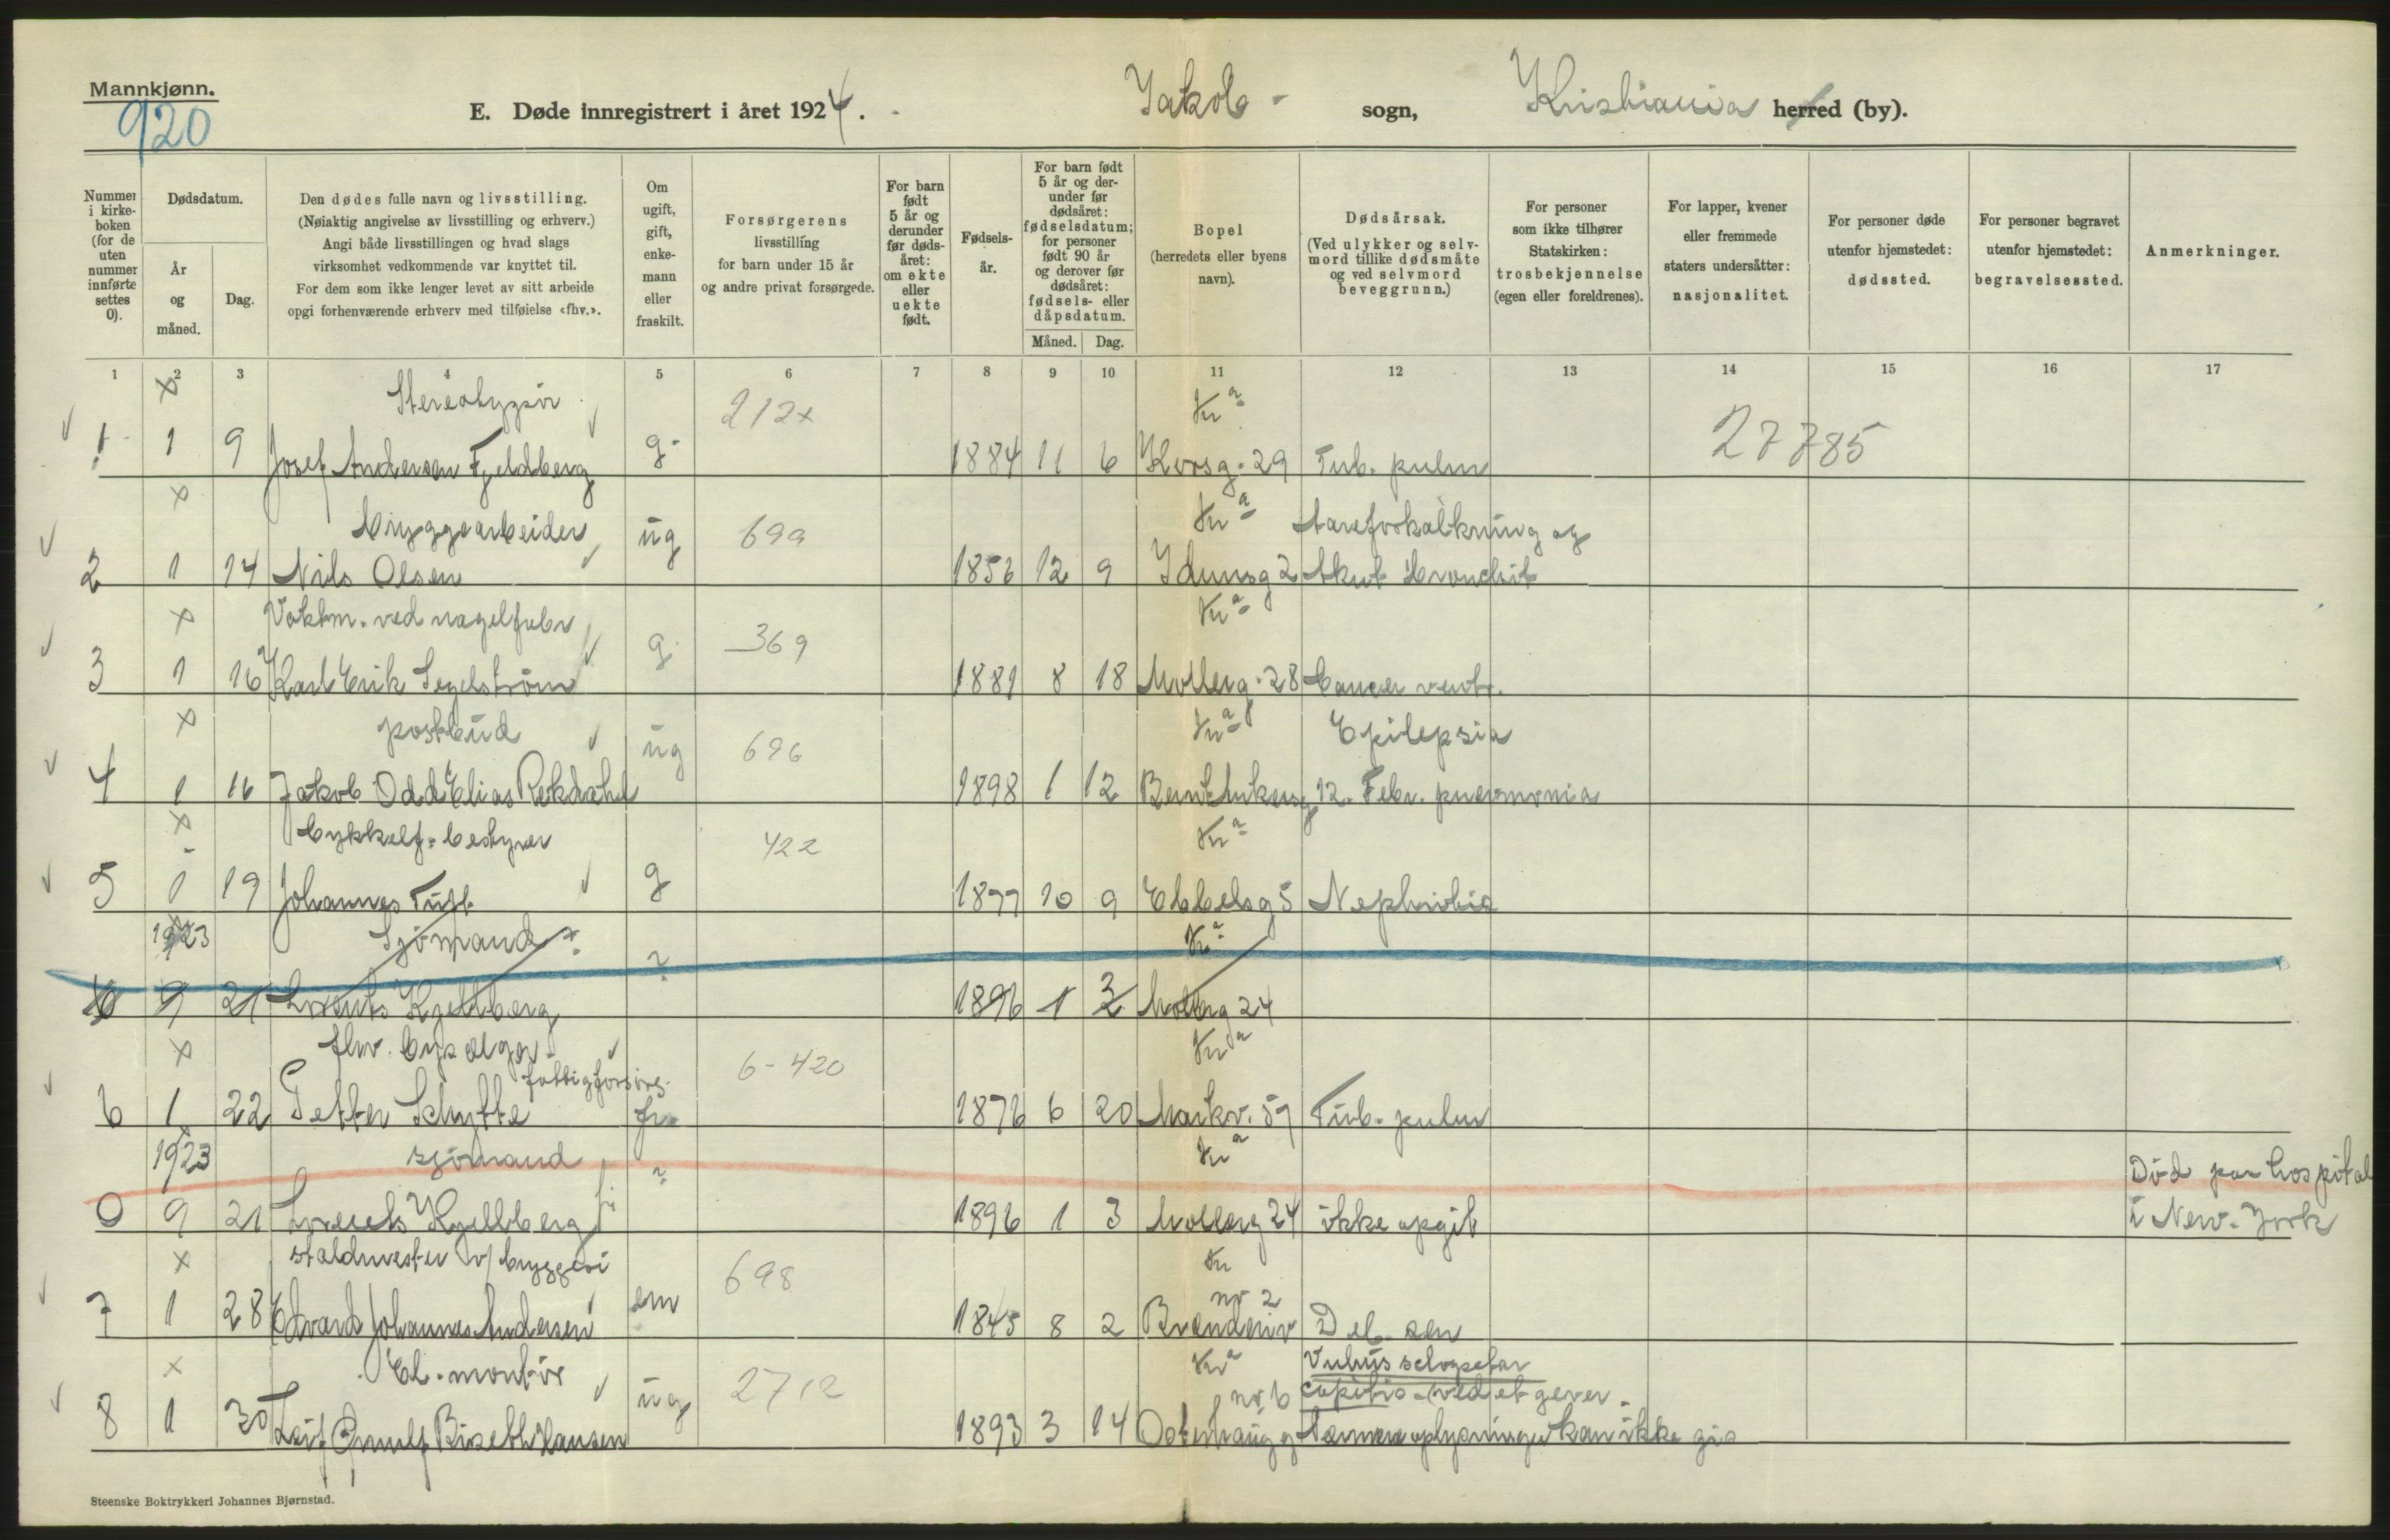 Mannkjønn.
920
E. Døde innregistrert i året 1924.
Jakob - sogn, Kristiania herred (by).
Nummer i kirkeboken (for de uten nummer innførte settes 0).
Dødsdatum.
År og måned.
Dag.
Den dødes fulle navn og livsstilling.
(Nøiaktig angivelse av livsstilling og erhverv.)
Angi både livsstillingen og hvad slags
virksomhet vedkommende var knyttet til.
For dem som ikke lenger levet av sitt arbeide
opgi forhenværende erhverv med tilføielse «fhv.».
Om ugift, gift, enkemann eller fraskilt.
Forsørgerens
livsstilling
for barn under 15 år
og andre privat forsørgede.
For barn født 5 år og derunder før dødsåret: om ekte eller uekte født.
Fødselsår.
For barn født 5 år og derunder før dødsåret: fødselsdatum; for personer født 90 år og derover før dødsåret: fødsels- eller dåpsdatum.
Måned. Dag.
Bopel
(herredets eller byens navn).
Dødsårsak.
(Ved ulykker og selvmord tillike dødsmåte og ved selvmord beveggrunn.)
For personer
som ikke tilhører
Statskirken:
trosbekjennelse
(egen eller foreldrenes).
For lapper, kvener
eller fremmede
staters undersåtter:
nasjonalitet.
For personer døde
utenfor hjemstedet:
dødssted.
For personer begravet
utenfor hjemstedet:
begravelsessted.
Anmerkninger.
1 2 3 4 5 6 7 8 9 10 11 12 13 14 15 16 17
x Stereotypør 212x Kra
1 1 9 Josef Andersen Fjeldberg g. 1884 11 6 Korsg. 29 Tub. pulm 27785
x Bryggearbeider ug 699 Kra Aareforkalkning og
2 1 14 Nils Olsen 1856 12 9 Idunsg 2 Akut Bronchit
x Vaktm. ved nagelfabr g 369 Kra
3 1 16 Karl Erik Segelstrøm 1881 8 18 Mollerg. 28 Cancer ventr.
x postbud ug 696 Kra Epilepsia
4 1 16 Jakob Odd Elias Rekdahl 1898 1 12 Bernt Ankersg 12. Febr. pneumonia
x Cykkelf. bestyrer 422 Kra
5 1 19 Johannes Tuft g 1877 10 9 Ebbelsg 5 Nephritis
1923 Sjømand ? Kra
6 9 21 Lorents Kjellberg 1896 1 3 Mollerg 24
x fhv. Cyselger fattigforsørg. 6-420 Kra
6 1 22 Petter Schytte fr 1876 6 20 Markv. 59 Tub. pulm
1923 sjømand ? Kra Død paa hospital
0 9 21 Lorents Kjellberg 1896 1 3 Mollerg 24 ikke opgit i New-York
x staldmester v/ bryggeri 698 Kr
7 1 28 Edvard Johannes Andersen em 1845 8 2 Brenneriv nr 2 Deb. sen
x El. montør ug 2712 Kra Vulnus sclopetar
nr. 6 capitis - ved et gever.
8 1 30 Leif Ørnulf Biseth Hansen 1893 3 14 Ostenhaugg Nærmere oplysninger kan ikke gis
Steenske Boktrykkeri Johannes Bjørnstad.